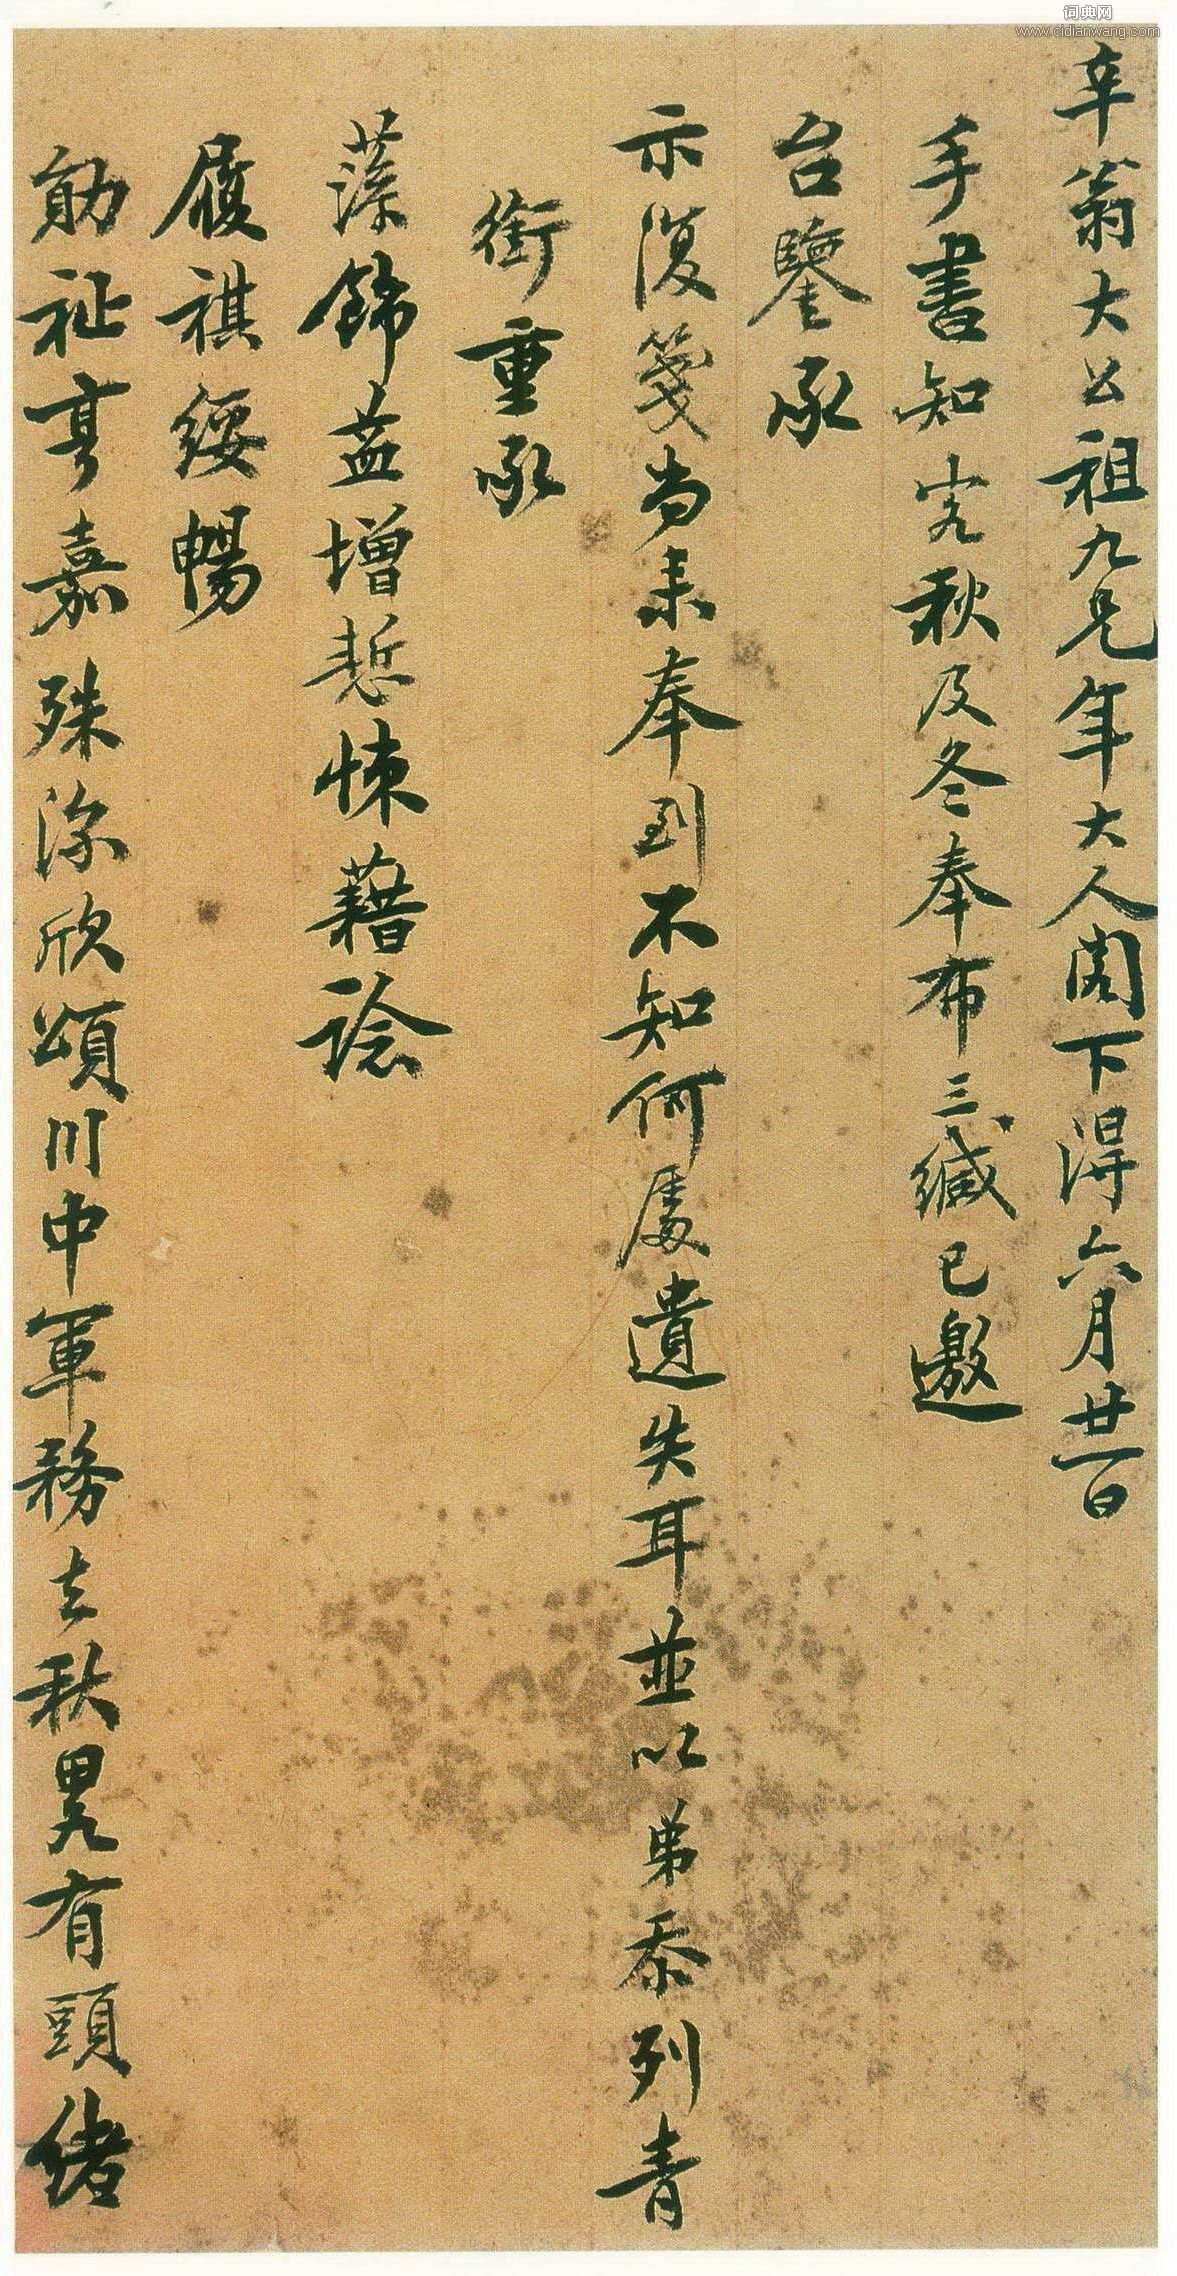 词典网
www.cidianwang.com
辛翁大公祖九兄年大人閣下得六月廿一日
手書知客秋及冬奉布三緘已邀
台鑒承
示復箋尚未奉到不知何處遺失耳並以弟忝列青
銜重承
藻飾益增慙悚藉諗
履祺綏暢
勛祉亨嘉殊深欣頌川中軍務去秋畧有頭緒